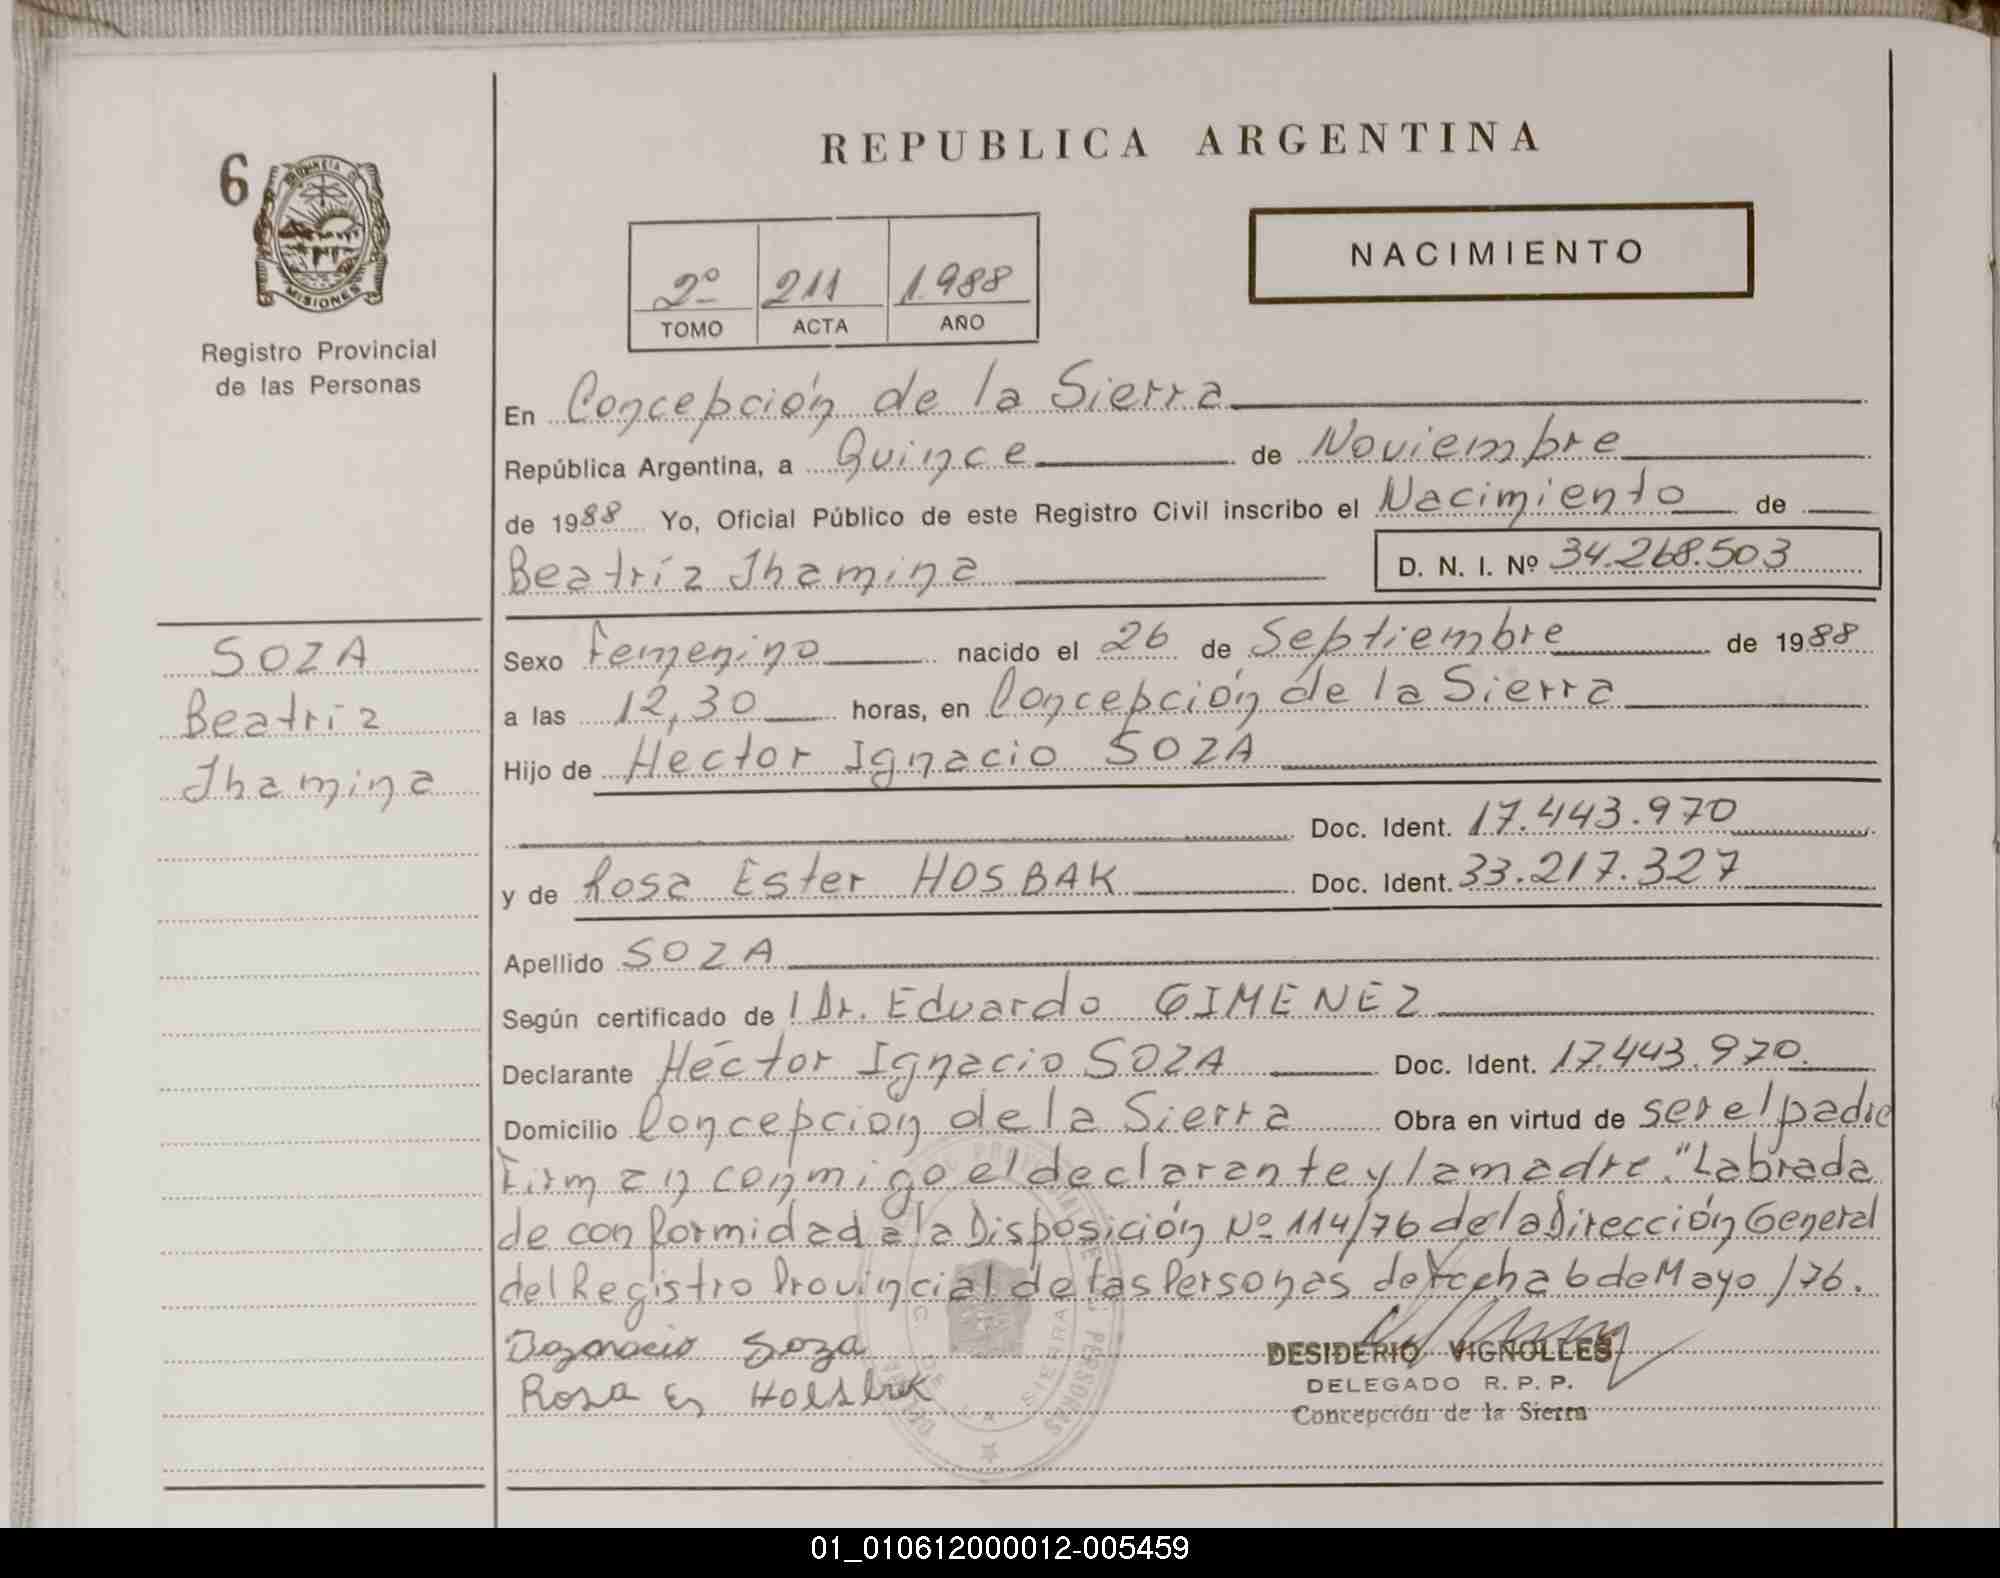 6
PROVINCIA DE
MISIONES
Registro Provincial
de las Personas
REPUBLICA ARGENTINA
2º 211 1.988
TOMO ACTA AÑO
NACIMIENTO
En Concepción de la Sierra
República Argentina, a Quince de Noviembre
de 1988 Yo, Oficial Público de este Registro Civil inscribo el Nacimiento de
Beatríz Jhamina D. N. I. Nº 34.268.503
SOZA
Beatríz
Jhamina
Sexo Femenino nacido el 26 de Septiembre de 1988
a las 12,30 horas, en Concepción de la Sierra
Hijo de Hector Ignacio SOZA
Doc. Ident. 17.443.970
y de Rosa Ester HOSBAK Doc. Ident. 33.217.327
Apellido SOZA
Según certificado de l Dr. Eduardo GIMENEZ
Declarante Héctor Ignacio SOZA Doc. Ident. 17.443.970.
Domicilio Concepcion de la Sierra Obra en virtud de ser el padre
Firman conmigo el declarante y la madre. "Labrada
de conformidad a la Disposición Nº 114/76 de la Dirección General
del Registro Provincial de las Personas de Fecha 6 de Mayo /76.
Soza
Rosa Es
DESIDERIO VIGNOLLES
DELEGADO R. P. P.
Concepción de la Sierra
01_010612000012-005459